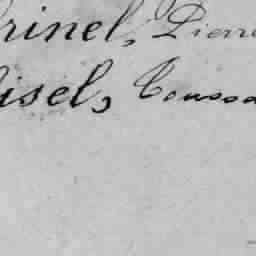 rinel, Pierre
isel, Toussa